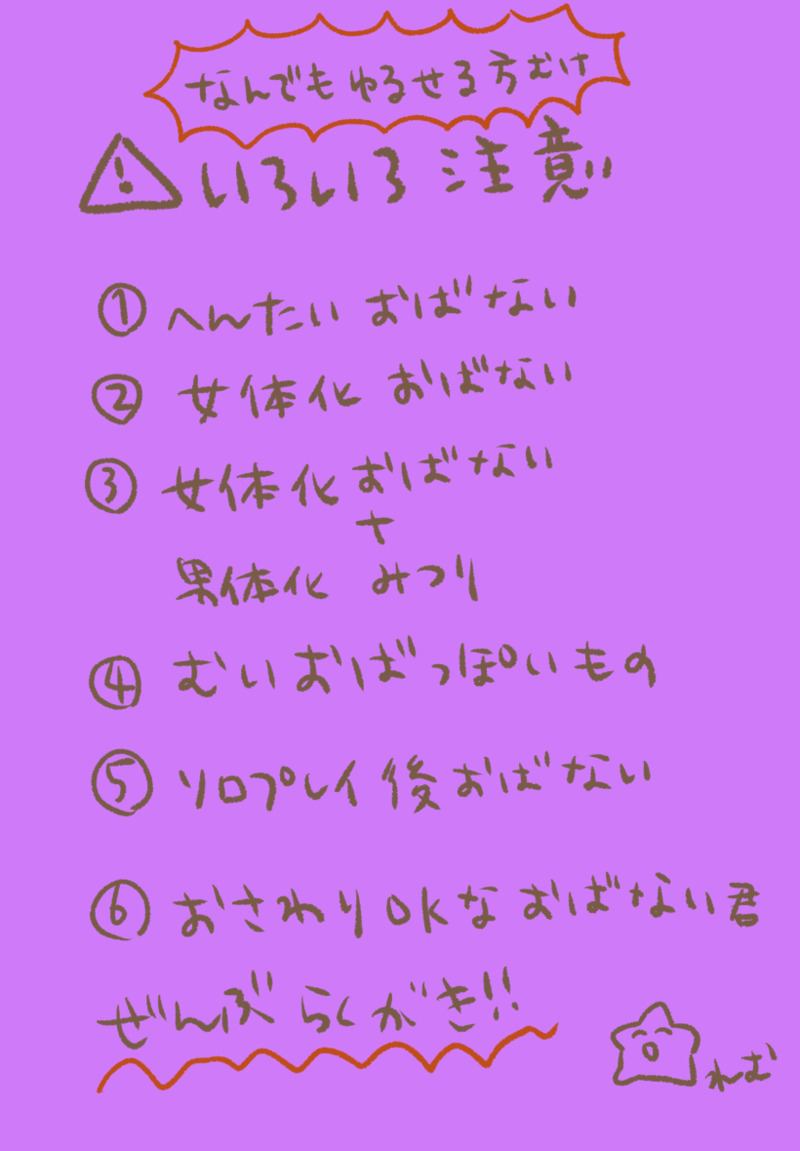 なんでもゆるせる方むけ
いろいろ注意
① へんたい おばない
② 女体化 おばない
③ 女体化おばない
+
男体化 みつり
④ むいおばっぽいもの
⑤ ソロプレイ後おばない
⑥ おさわりOKな おばない君
ぜんぶ らくがき!!
れむ